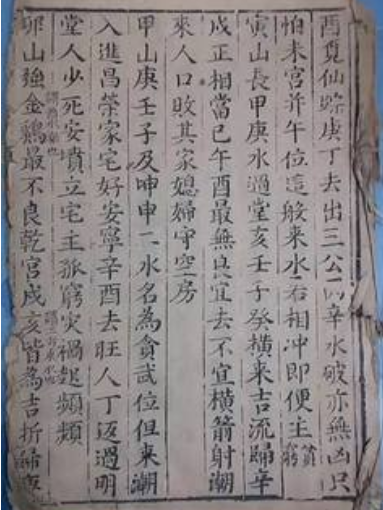 酉覓仙賒庚丁去出三公丙辛水破亦無凶只
怕未宮并午位這般来水若相冲即便主貧窮
寅山長甲庚水過堂亥壬子癸横来吉流歸辛
戍正相當巳午酉最無良宜去不宜横箭射潮
来人口敗其家媳婦守空房
甲山庚壬子及坤申二水名為貪武位但来潮
入進昌榮家宅好安寧辛酉去旺人丁返過明
堂人少死安墳立宅主孤窮灾禍起頻頻
卯山強金鷄最不良乾宮戍亥皆為吉折歸